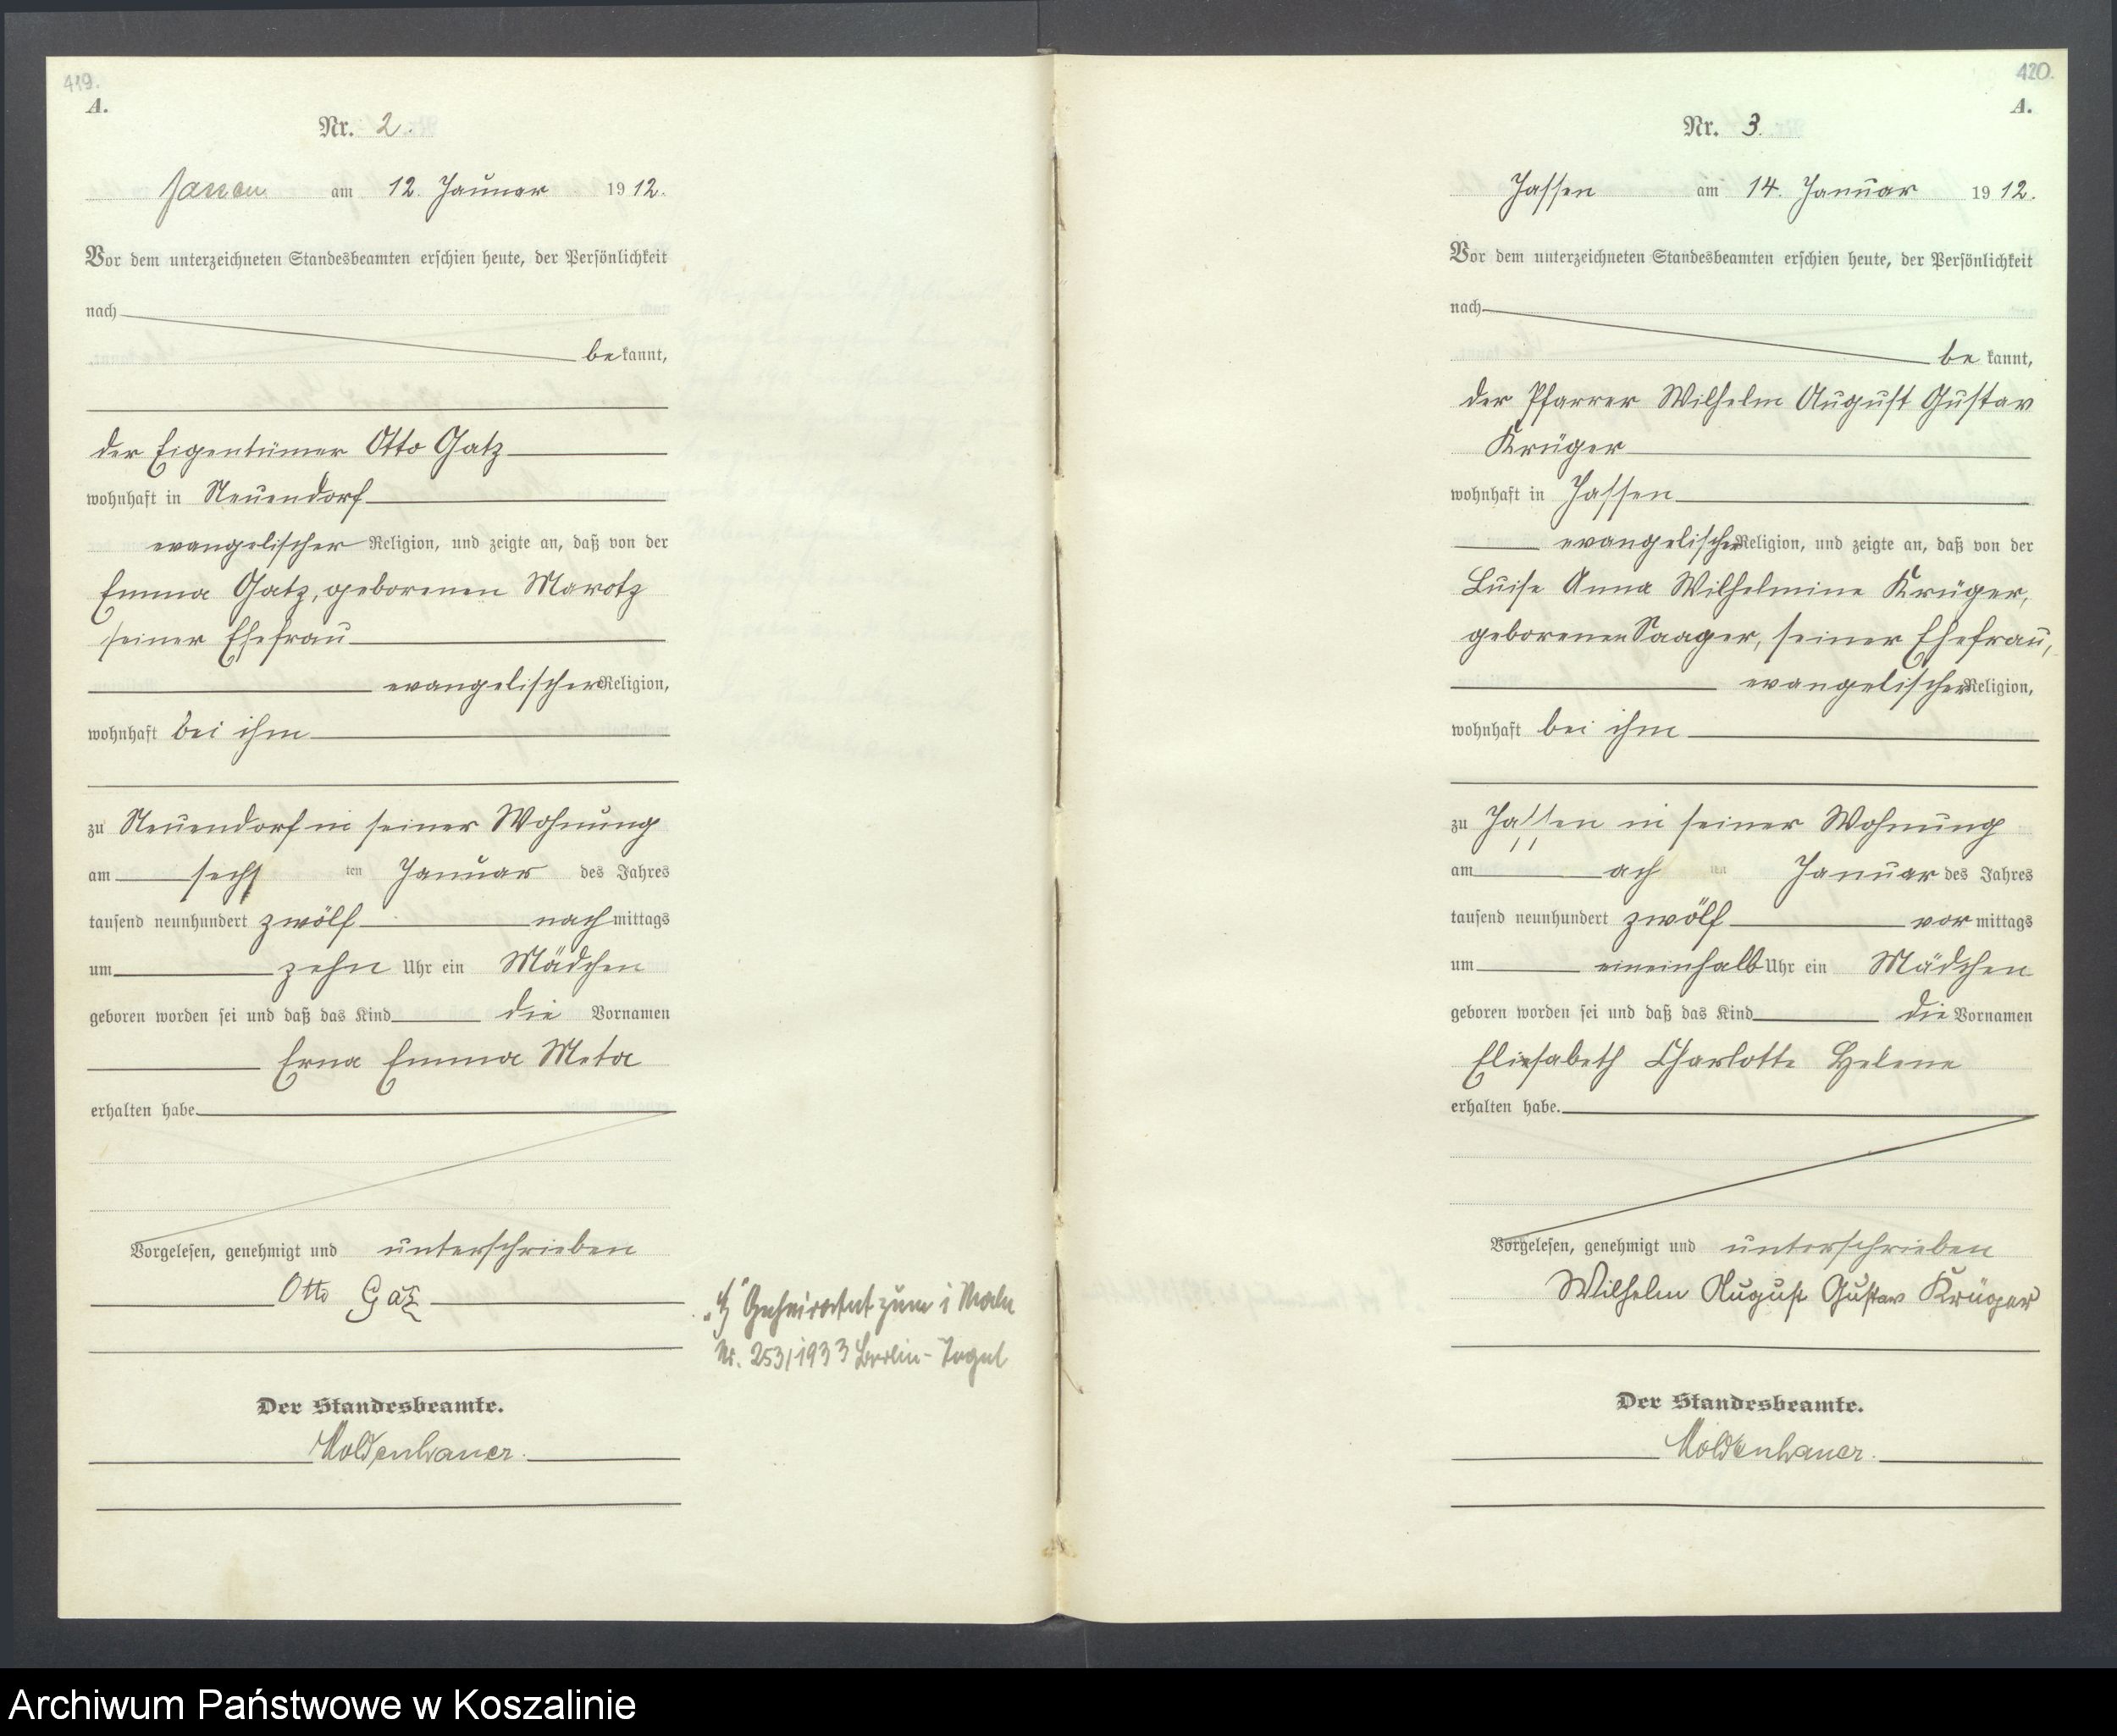 419.
A.
Nr. 2.
Jassen am 12. Januar 1912.
Vor dem unterzeichneten Standesbeamten erschien heute, der Persönlichkeit
nach
be kannt,
der Eigentümer Otto Gatz
wohnhaft in Neuendorf
evangelischer Religion, und zeigte an, daß von der
Emma Gatz, geborenen Marotz
seiner Ehefrau
evangelischer Religion,
wohnhaft bei ihm
zu Neuendorf in seiner Wohnung
am sechs ten Januar des Jahres
tausend neunhundert zwölf nach mittags
um zehn Uhr ein Mädchen
geboren worden sei und daß das Kind die Vornamen
Erna Emma Meta
erhalten habe
Vorgelesen, genehmigt und unterschrieben
Otto Gatz
Der Standesbeamte.
Moldenhauer.
zum 1 Male
Nr. 253/1933 Berlin-Tegel
420.
A.
Nr. 3.
Jassen am 14. Januar 1912.
Vor dem unterzeichneten Standesbeamten erschien heute, der Persönlichkeit
nach
be kannt,
der Pfarrer Wilhelm August Gustav
Krüger
wohnhaft in Jassen
evangelischer Religion, und zeigte an, daß von der
Luise Anna Wilhelmine Krüger,
geborenen Saager, seiner Ehefrau,
evangelischer Religion,
wohnhaft bei ihm
zu Jassen in seiner Wohnung
am ach ten Januar des Jahres
tausend neunhundert zwölf vor mittags
um eineinhalb Uhr ein Mädchen
geboren worden sei und daß das Kind die Vornamen
Elisabeth Charlotte Helene
erhalten habe.
Vorgelesen, genehmigt und unterschrieben
Wilhelm August Gustav Krüger
Der Standesbeamte.
Moldenhauer.
Archiwum Państwowe w Koszalinie